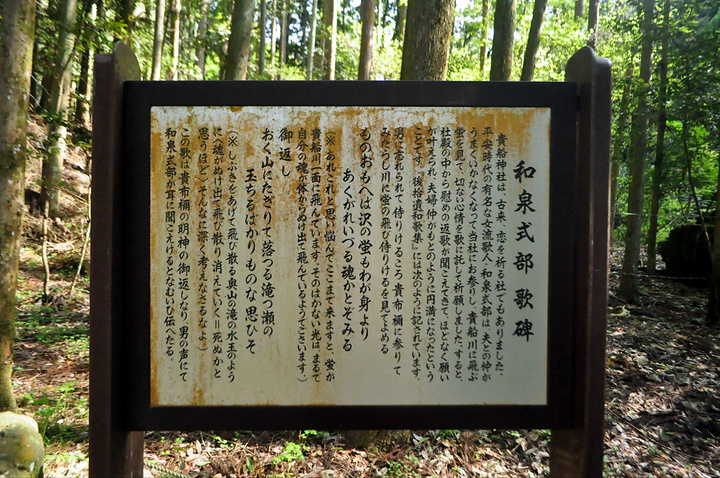 和泉式部歌碑
貴船神社は、古来、恋を祈る社でもありました。
平安時代の有名な女流歌人・和泉式部は、夫との仲が
うまくいかなくなって当社にお参りし、貴船川に飛ぶ
蛍を見て、切ない心情を歌に託して祈願しました。すると、
社殿の中から慰めの返歌が聞こえてきて、ほどなく願い
が叶えられ、夫婦仲がもとのように円満になったという
ことです。『後拾遺和歌集』には次のように記されています。
男に忘れられて侍りけるころ貴布禰に参りて
みたらし川に蛍の飛び侍りけるを見てよめる
ものおもへば沢の蛍もわが身より
あくがれいづる魂かとぞみる
(※あれこれと思い悩んでここまで来ますと、蛍が
貴船川一面に飛んでいます。そのはかない光は、まるで
自分の魂が体からぬけ出て飛んでいるようでございます。)
御返し
おく山にたぎりて落つる滝つ瀬の
玉ちるばかりものな思ひそ
(※しぶきをあげて飛び散る奥山の滝の水玉のよう
に(魂がぬけ出て飛び散り消えていく=死ぬかと
思うほど)そんなに深く考えなさるなよ。)
この歌は貴布禰の明神の御返しなり、男の声にて
和泉式部が耳に聞こえけるとなむいひ伝へたる。